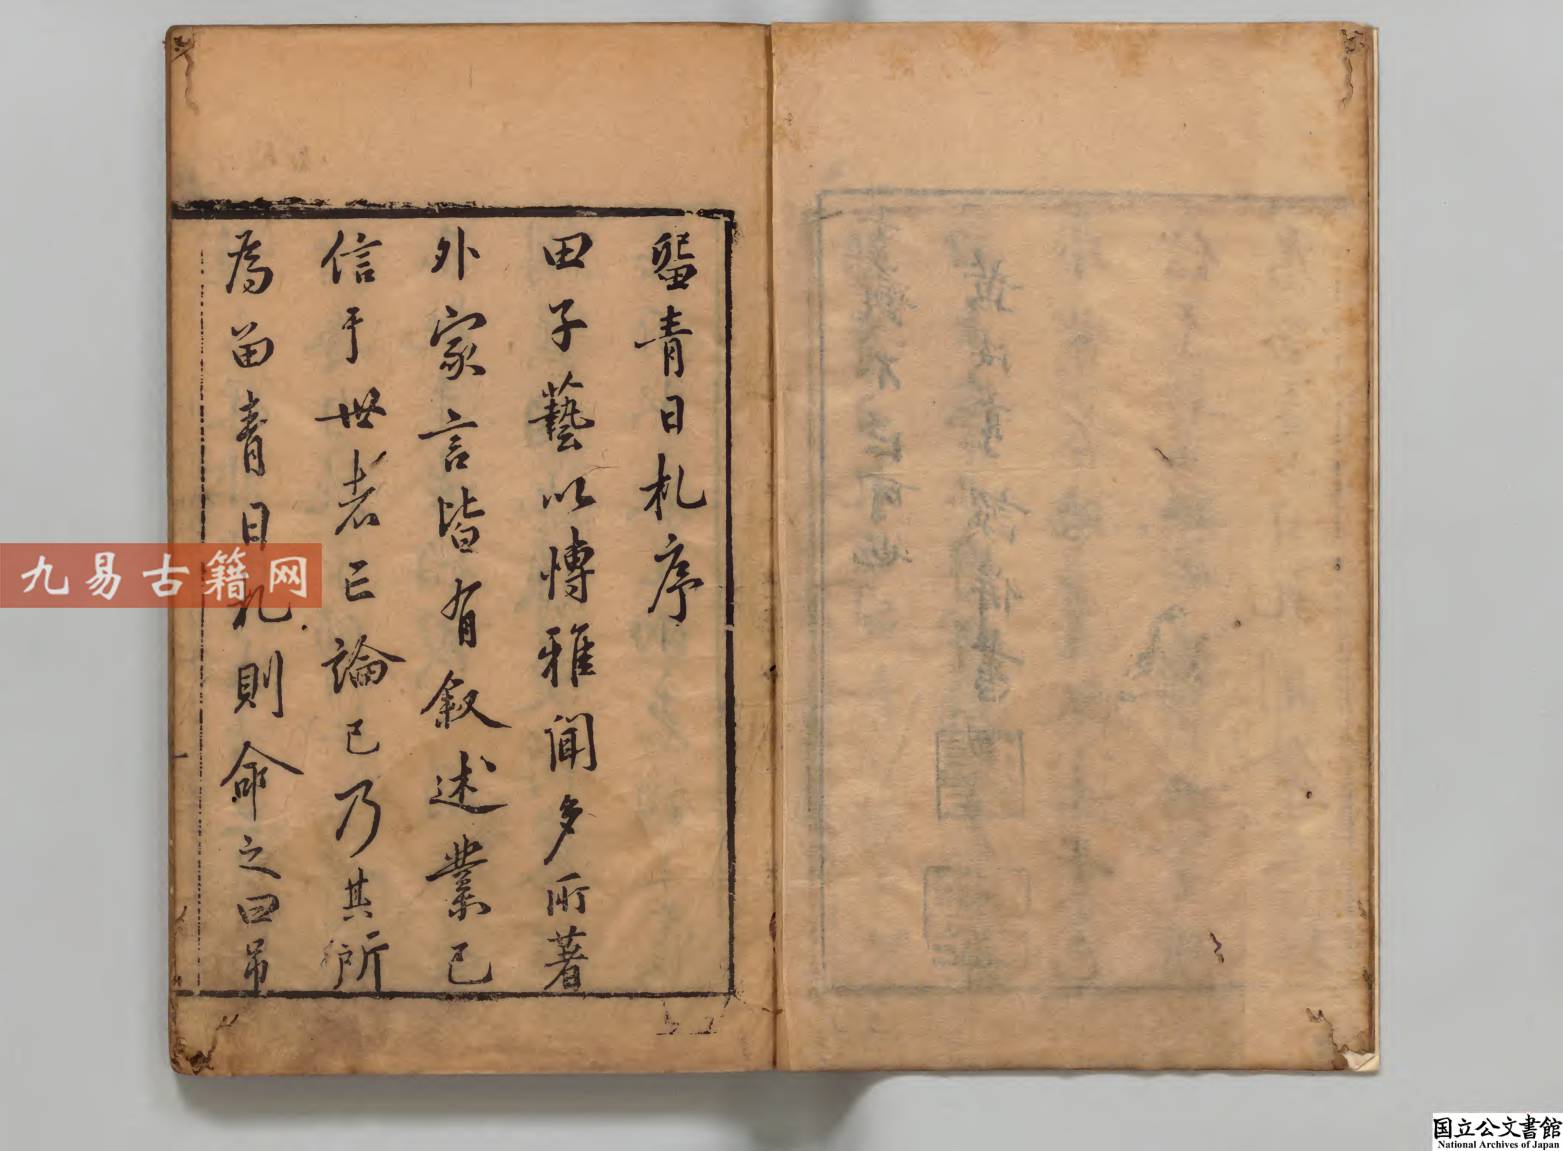 畱青日札序
田子藝以博雅聞多所著
外家言皆有叙述業已
信于世者已論已乃其所
為留青日札則命之曰帚
九易古籍网
国立公文書館
National Archives of Japan